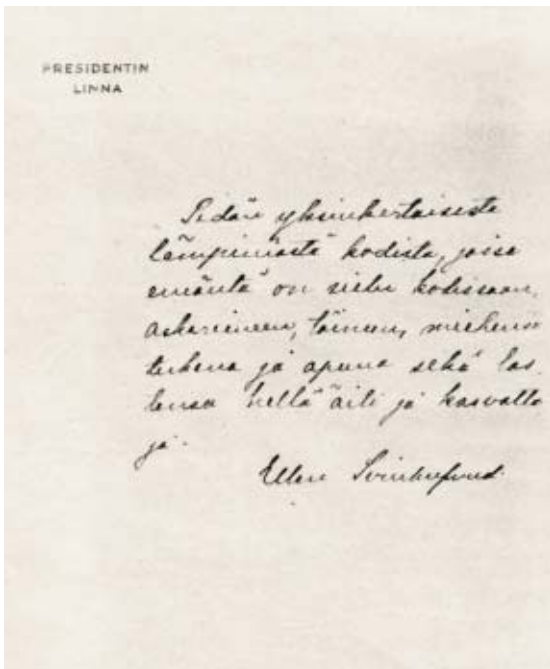 PRESIDENTIN
LINNA
Pidän yksinkertaisesta
lämpimästä kodista, jossa
emäntä on sielu kodissaan,
askareineen, toimen, miehensä
tukena ja apuna sekä las-
tensa hellä äiti ja kasvatta
ja.
Ellen Svinhufvud.